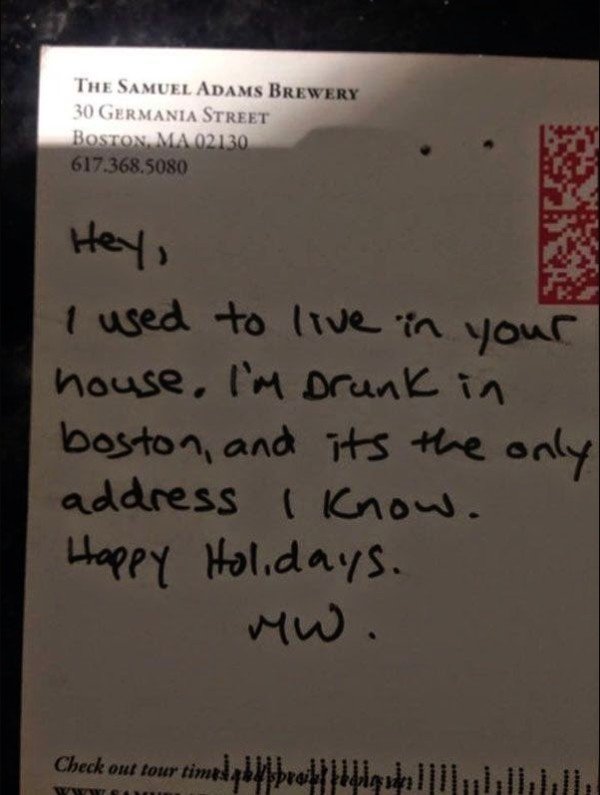 THE SAMUEL ADAMS BREWERY
30 GERMANIA STREET
BOSTON, MA 02130
617.368.5080
Hey,
I used to live in your
house. I'm Drunk in
boston, and its the only
address I Know.
Happy Holidays.
MW.
Check out tour times and special events at: